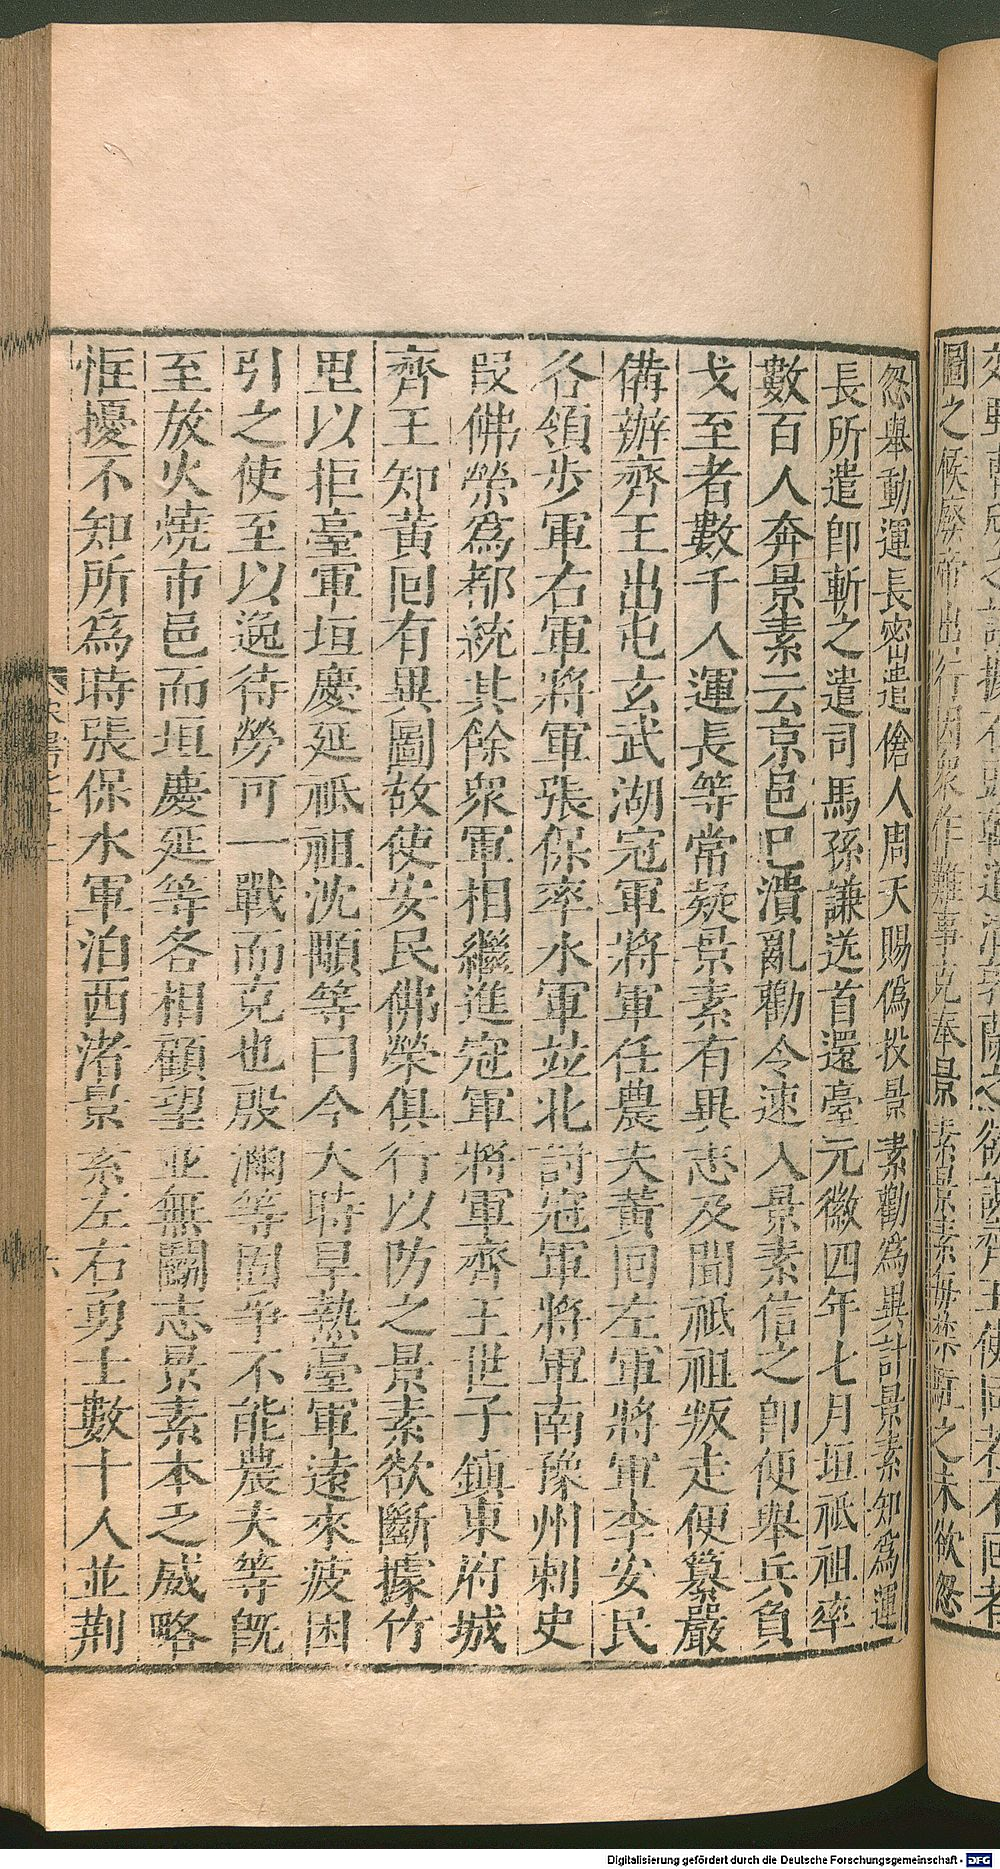 圖之候廢帝出行因衆作難事克奉景素景素每禁之未欲忽
忽舉動運長密遣傖人周天賜偽投景素勸為異計景素知為運
長所遣即斬之遣司馬孫謙送首還臺元徽四年七月垣祗祖率
數百人奔景素云京邑巳潰亂勸令速入景素信之即便舉兵負
戈至者數千人運長等常疑景素有異志及聞祗祖叛走便纂嚴
備辦齊王出屯玄武湖冠軍將軍任農夫黃回左軍將軍李安民
各領步軍右軍將軍張保率水軍並北討冠軍將軍南豫州刺史
段佛榮為都統其餘衆軍相繼進冠軍將軍齊王世子鎮東府城
齊王知黃回有異圖故使安民佛榮俱行以防之景素欲斷據竹
里以拒臺軍垣慶延祗祖沈顒等曰今天時旱熱臺軍遠來疲困
引之使至以逸待勞可一戰而克也殷瀰等固爭不能農夫等旣
至放火燒市邑而垣慶延等各相顧望並無鬭志景素本乏威略
恇擾不知所為時張保水軍泊西渚景素左右勇士數十人並荆
六
Digitalisierung gefördert durch die Deutsche Forschungsgemeinschaft - DFG